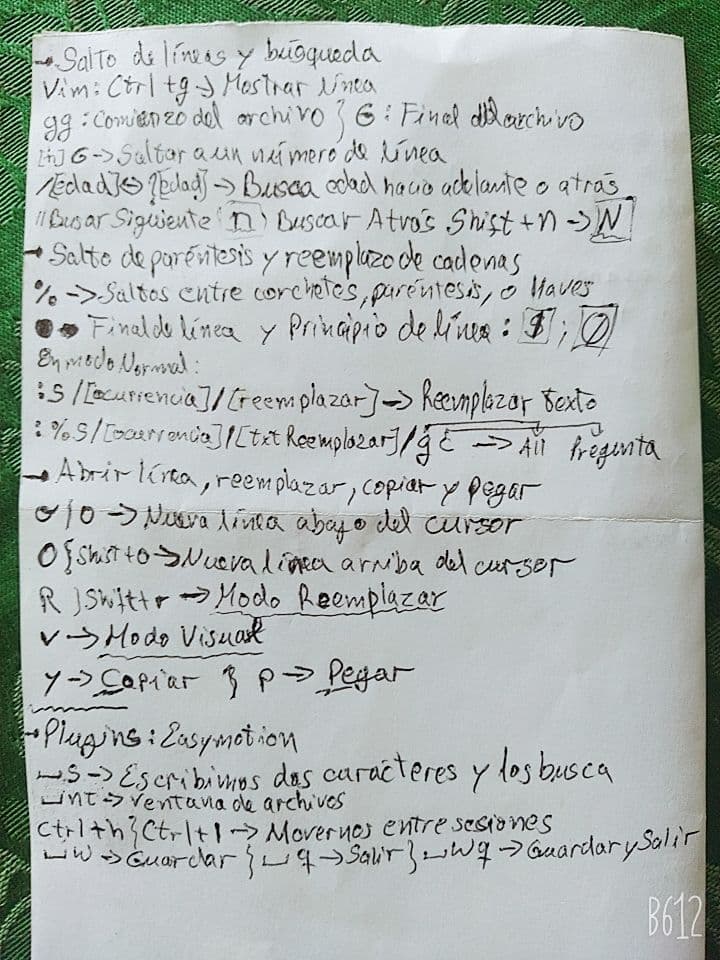 → Salto de líneas y búsqueda
Vim: Ctrl + g → Mostrar línea
gg : Comienzo del archivo } G : Final del archivo
[n] G → Saltar a un número de línea
/[Edad] ↔ ?[edad] → Busca edad hacia adelante o atrás
"Busar Siguiente (n) Buscar Atrás Shist + n → N
→ Salto de paréntesis y reemplazo de cadenas
% → Saltos entre corchetes, paréntesis, o llaves
Final de línea y Principio de línea : $ ; 0
En modo Normal :
: S / [ocurrencia] / [reemplazar] → Reemplazar texto
: % S / [ocurrencia] / [txt Reemplazar] / g c → All Pregunta
→ Abrir línea, reemplazar, copiar y pegar
o | o → Nueva línea abajo del cursor
O { Shist + o → Nueva línea arriba del cursor
R } Shift + r → Modo Reemplazar
v → Modo Visual
y → Copiar } p → Pegar
→ Plugins : Easymotion
⎵s → Escribimos dos carácteres y los busca
⎵nt → ventana de archivos
Ctrl + h } Ctrl + l → Movernos entre sesiones
⎵w → Guardar { ⎵q → Salir } ⎵wq → Guardar y Salir
B612